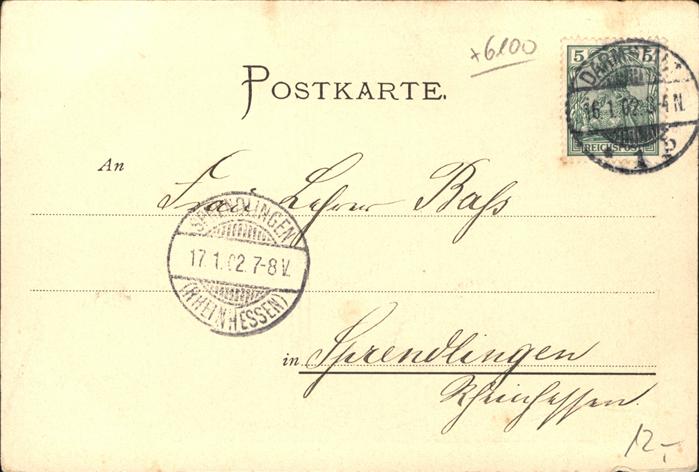 +6100
POSTKARTE.
5 5
REICHSPOST
DARMSTADT
16.1.02 3-4N.
1
An Frau Lehrer Baß
SPRENDLINGEN
17.1.02.7-8V.
(RHEINHESSEN)
in Sprendlingen
Rheinhessen.
12,-